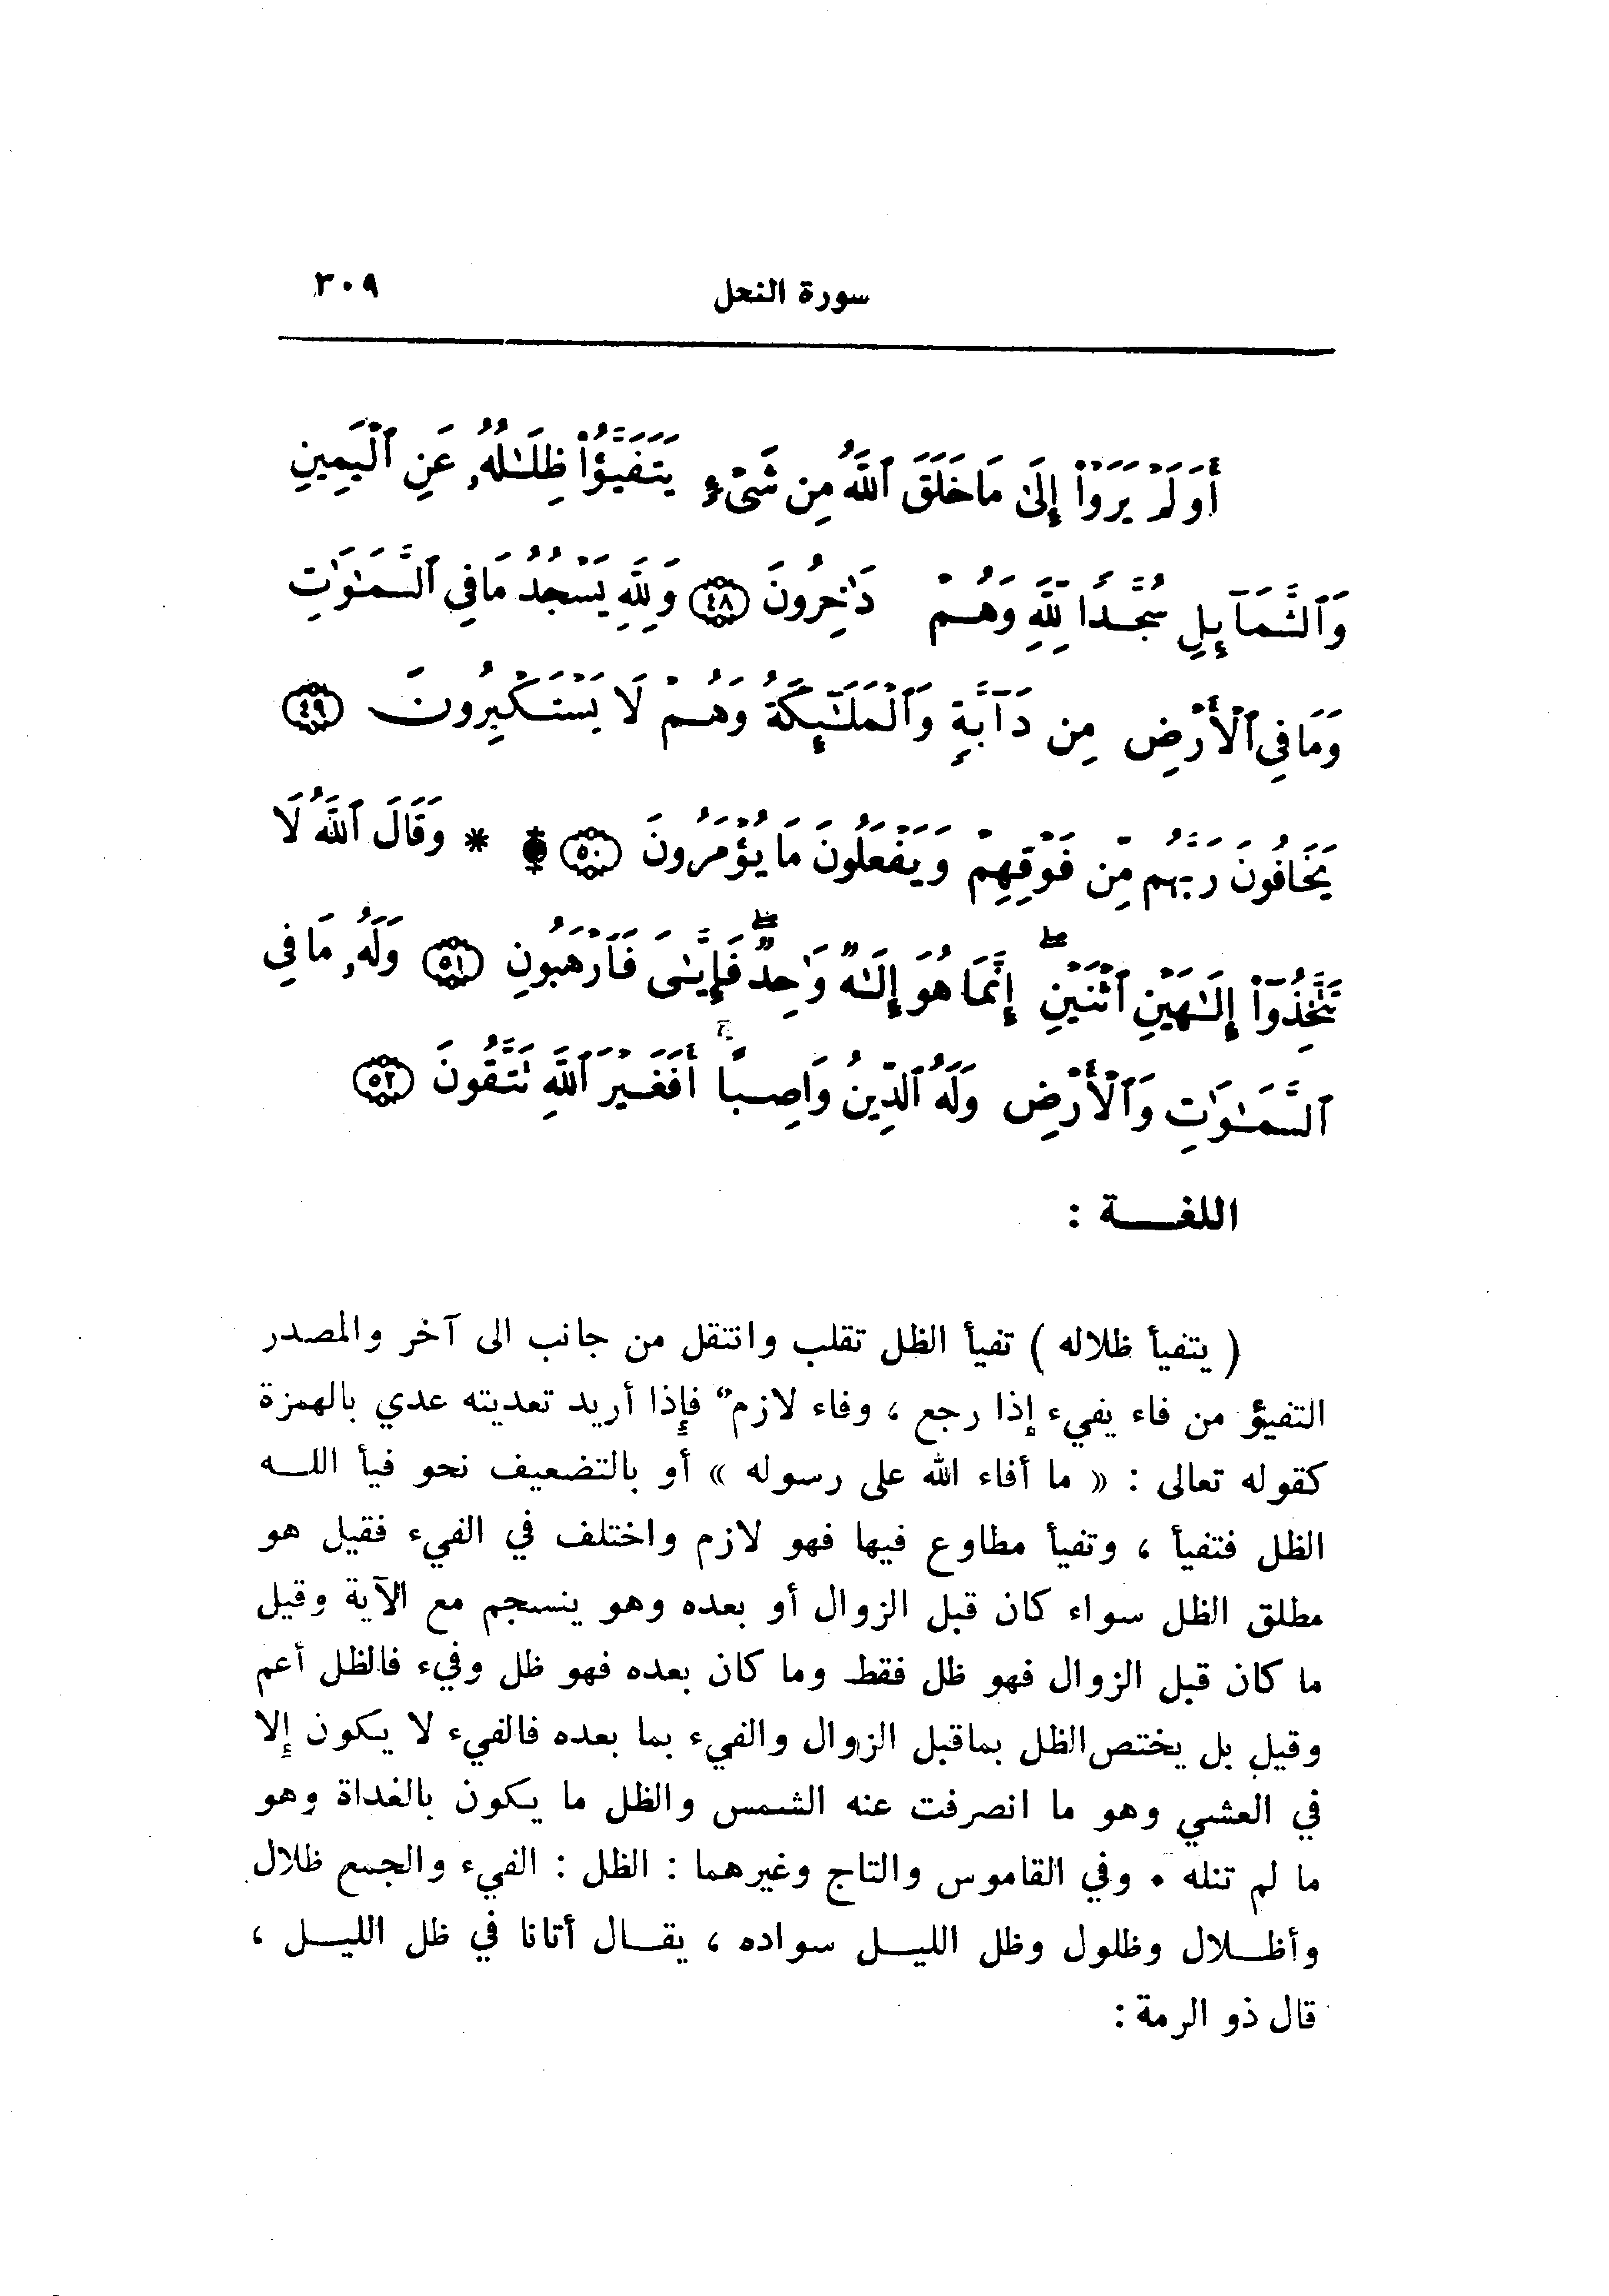 سورة النحل ٣٠٩
أَوَلَمْ يَرَوْاْ إِلَىٰ مَا خَلَقَ ٱللَّهُ مِن شَىْءٍ يَتَفَيَّؤُاْ ظِلَـٰلُهُۥ عَنِ ٱلْيَمِينِ
وَٱلشَّمَآئِلِ سُجَّدًا لِلَّهِ وَهُمْ دَٰخِرُونَ ٤٨ وَلِلَّهِ يَسْجُدُ مَا فِي ٱلسَّمَـٰوَٰتِ
وَمَا فِي ٱلْأَرْضِ مِن دَآبَّةٍ وَٱلْمَلَـٰٓئِكَةُ وَهُمْ لَا يَسْتَكْبِرُونَ ٤٩
يَخَافُونَ رَبَّهُم مِّن فَوْقِهِمْ وَيَفْعَلُونَ مَا يُؤْمَرُونَ ۩ ٥٠ * وَقَالَ ٱللَّهُ لَا
تَتَّخِذُوٓاْ إِلَـٰهَيْنِ ٱثْنَيْنِ ۖ إِنَّمَا هُوَ إِلَـٰهٌ وَٰحِدٌ ۖ فَإِيَّـٰىَ فَٱرْهَبُونِ ٥١ وَلَهُۥ مَا فِي
ٱلسَّمَـٰوَٰتِ وَٱلْأَرْضِ وَلَهُ ٱلدِّينُ وَاصِبًا ۚ أَفَغَيْرَ ٱللَّهِ تَتَّقُونَ ٥٢
اللغـــة :
( يتفيأ ظلاله ) تفيأ الظل تقلب وانتقل من جانب الى آخر والمصدر
التفيؤ من فاء يفيء إذا رجع ، وفاء لازمٌ فإِذا أريد تعديته عدي بالهمزة
كقوله تعالى : « ما أفاء الله على رسوله » أو بالتضعيف نحو فيأ اللــه
الظل فتفيأ ، وتفيأ مطاوع فيها فهو لازم واختلف في الفيء فقيل هو
مطلق الظل سواء كان قبل الزوال أو بعده وهو ينسجم مع الآية وقيل
ما كان قبل الزوال فهو ظل فقط وما كان بعده فهو ظل وفيء فالظل أعم
وقيل بل يختص الظل بماقبل الزوال والفيء بما بعده فالفيء لا يكون إلا
في العشي وهو ما انصرفت عنه الشمس والظل ما يكون بالغداة وهو
ما لم تنله . وفي القاموس والتاج وغيرهما : الظل : الفيء والجمع ظلال
وأظــلال وظلول وظل الليــل سواده ، يقــال أتانا في ظل الليــل ،
قال ذو الرمة :